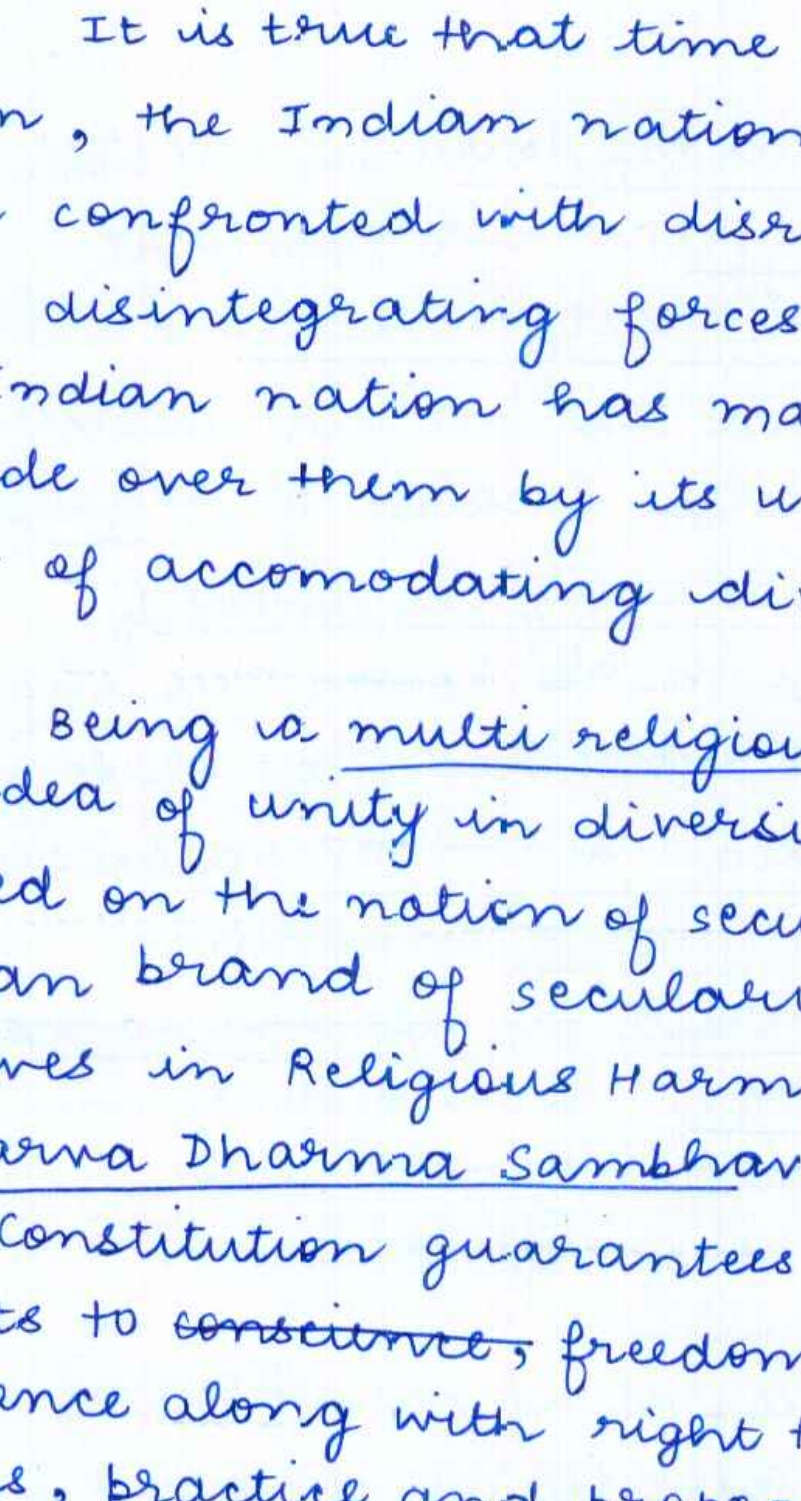 It is true that time
n, the Indian nation
confronted with disr
disintegrating forces
Indian nation has ma
de over them by its u
of accomodating di
Being a multi religiou
dea of unity in diversi
ed on the notion of secu
an brand of seculari
ves in Religious Harm
arva Dharma Sambhav
Constitution guarantees
ts to conscience, freedom
ence along with right t
s, practice and propa